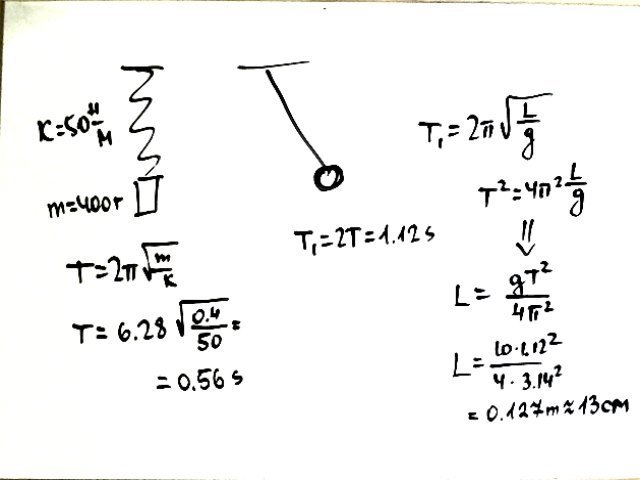 K=50 Н/м
m=400г
T=2π√(m/K)
T=6.28√(0.4/50)=
=0.56 s
T₁=2T=1.12 s
T₁=2π√(L/g)
T²=4π² L/g
⇓
L= gT²/4π²
L= 10·1.12²/4·3.14²
=0.127m≈13cm